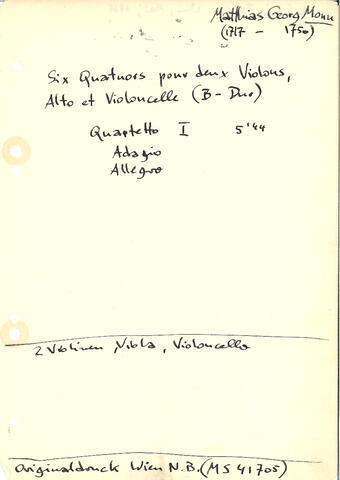 Matthias Georg Monn
(1717 - 1750)
Six Quatuors pour deux Violons,
Alto et Violoncelle (B-Dur)
Quartetto I 5'44
Adagio
Allegro
2 Violinen, Viola, Violoncello
Originaldruck Wien N.B. (MS 41705)